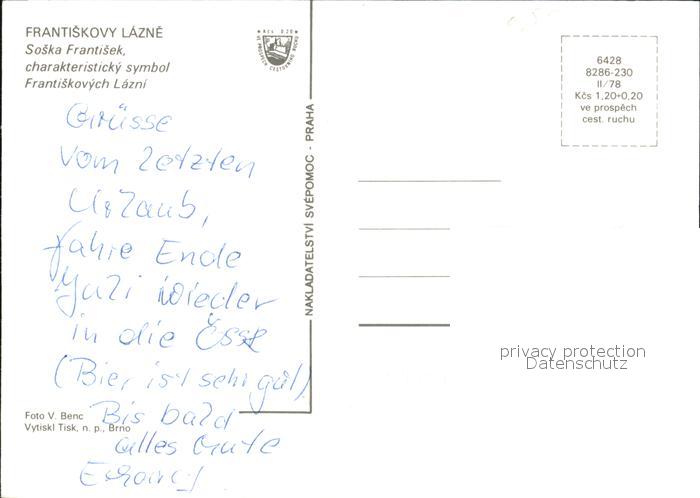 FRANTIŠKOVY LÁZNĚ
Soška František,
charakteristický symbol
Františkových Lázní
Kčs 0.20
VE PROSPĚCH CESTOVNÍHO RUCHU
6428
8286-230
II/78
Kčs 1,20+0,20
ve prospěch
cest. ruchu
Grüsse
vom letzten
Urlaub,
fahre Ende
Juli wieder
in die ČSSR
(Bier ist sehr gut)
Bis bald
alles Gute
NAKLADATELSTVÍ SVÉPOMOC - PRAHA
Foto V. Benc
Vytiskl Tisk, n. p., Brno
privacy protection
Datenschutz